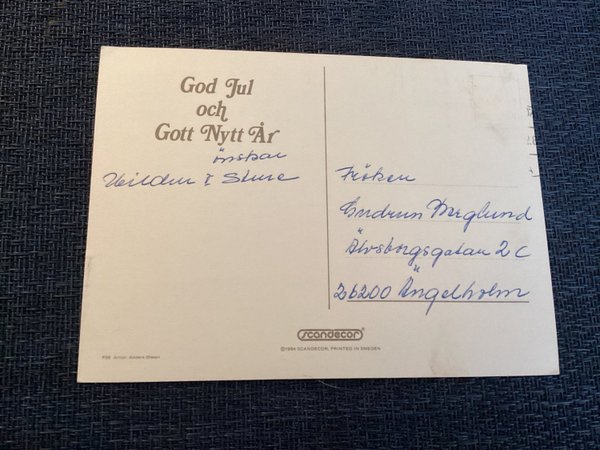 God Jul
och
Gott Nytt År
önskar
Sture
Fröken
Gudrun Berglund
Älvsborgsgatan 2 C
26200 Ängelholm
scandecor
©1984 SCANDECOR, PRINTED IN SWEDEN
Artist: Anders Olsson